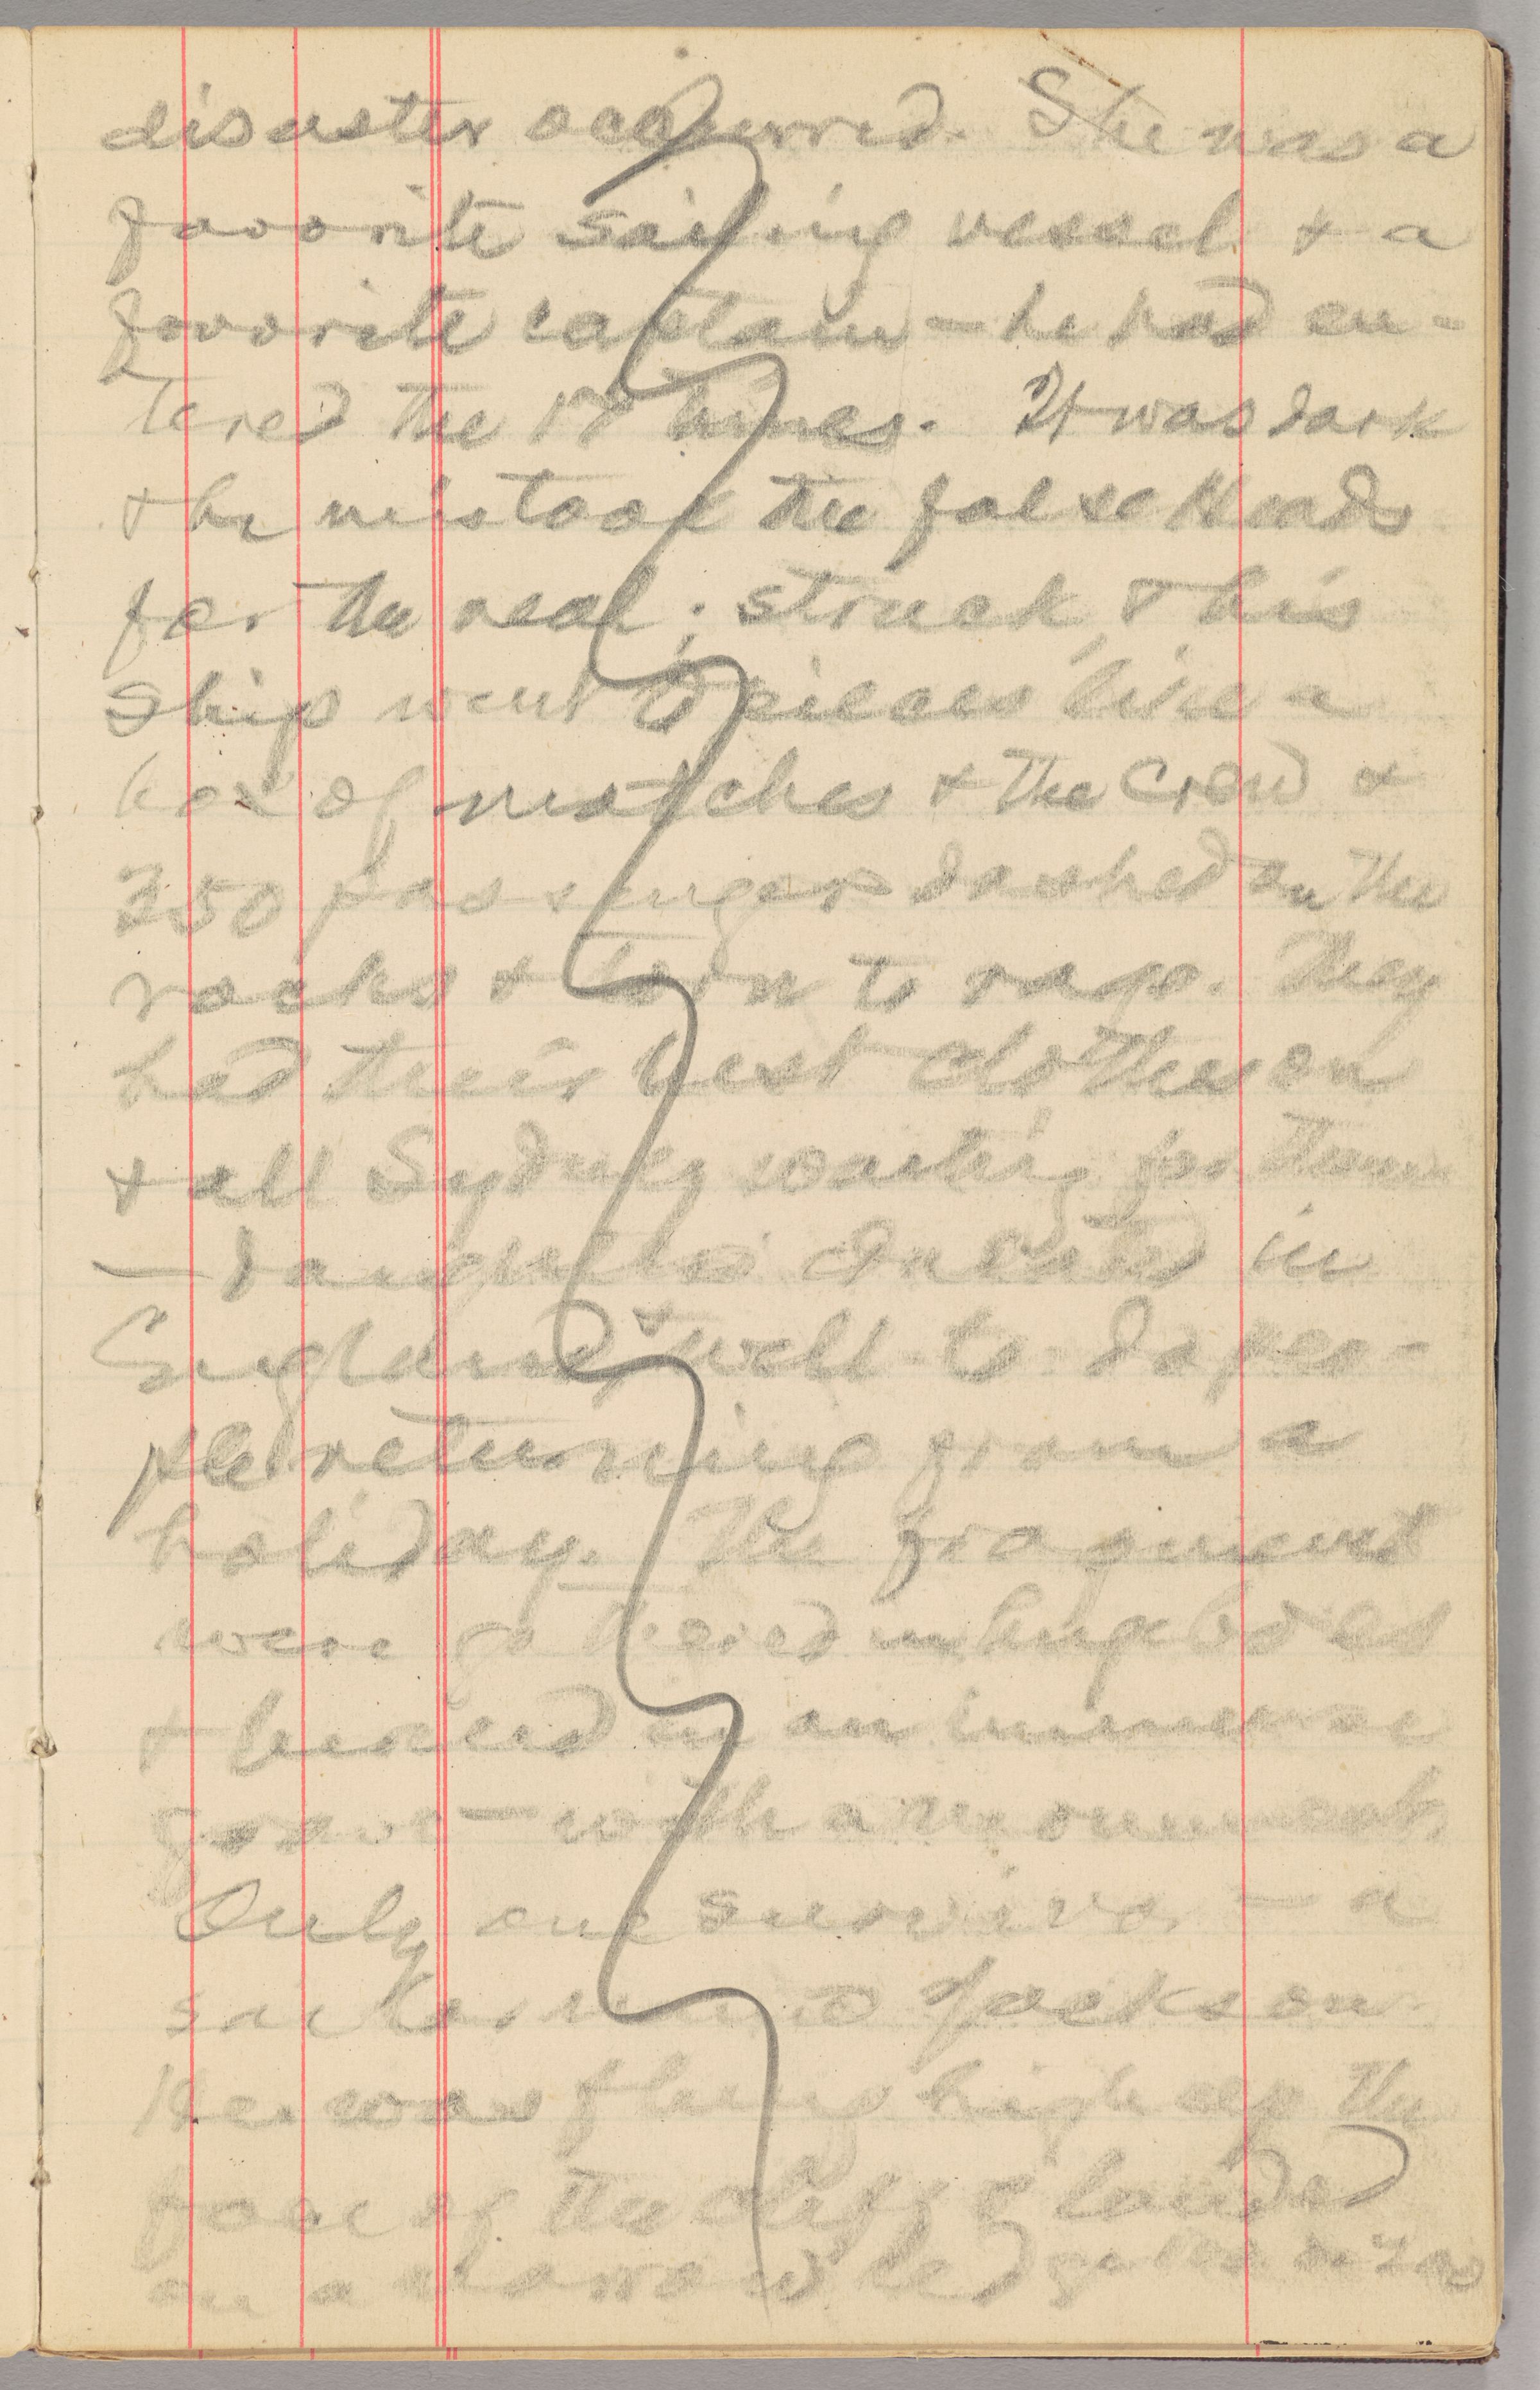 disaster occurred. She was a
favorite sailing vessel & a
favorite captain — he had en-
tered the 17 times. It was dark
& he mistook the false Heads
for the real; struck, & his
ship went to pieces like a
box of matches & the crew &
350 passengers dashed on the
rocks & torn to rags. They
had their best clothes on
& all Sydney waiting for them
— daughters educated in
England, & well-to-do peo-
ple returning from a
holiday. The fragments
were gathered in
& buried in an immense
grave — with a monument.
Only one survivor — a
sailor named Jackson.
He was flung high up the
face of the cliff & landed
on a narrow ledge